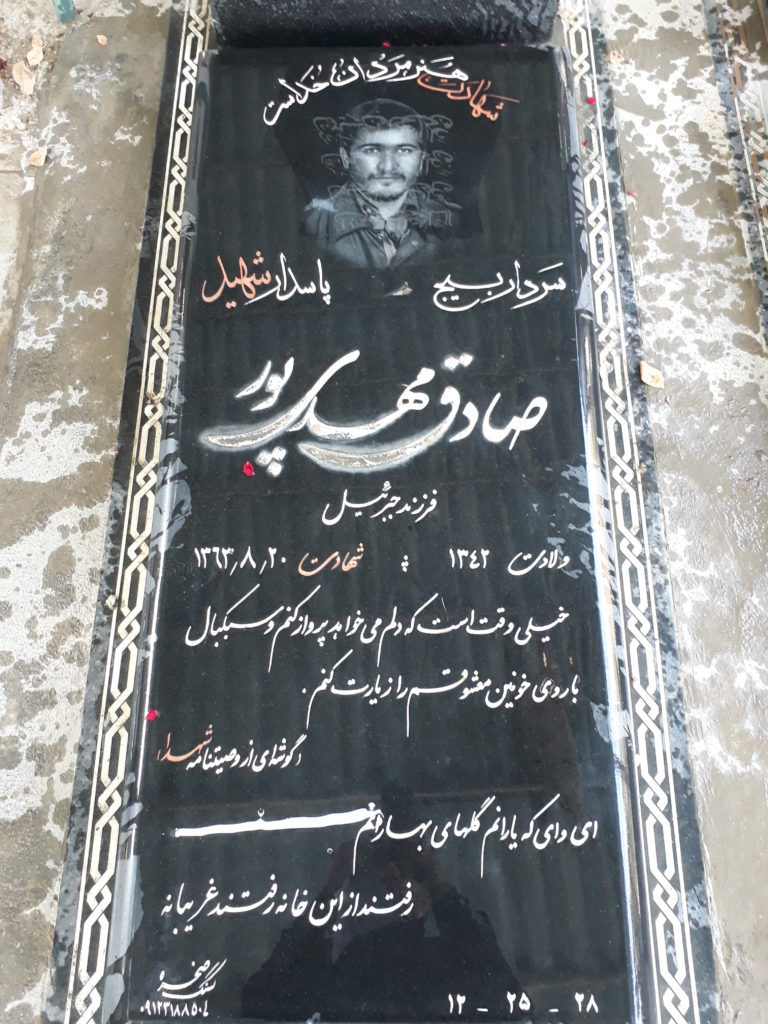 شهادت هنر مردان خداست
سردار بسیج پاسدار شهید
صادق مهدی پور
فرزند جبرئیل
ولادت ۱۳۴۲ شهادت ۱۳۶۳٫۸٫۲۰
خیلی وقت است که دلم می خواهد پرواز کنم و سبکبال
با روی خونین معشوقم را زیارت کنم.
گوشه ای از وصیتنامه شهدا
ای وای که یارانم گلهای بهارانم
رفتند از این خانه رفتند غریبانه
۲۸ - ۲۵ - ۱۲
سنگ صخره
۰۹۱۲۳۱۸۸۵۰۴